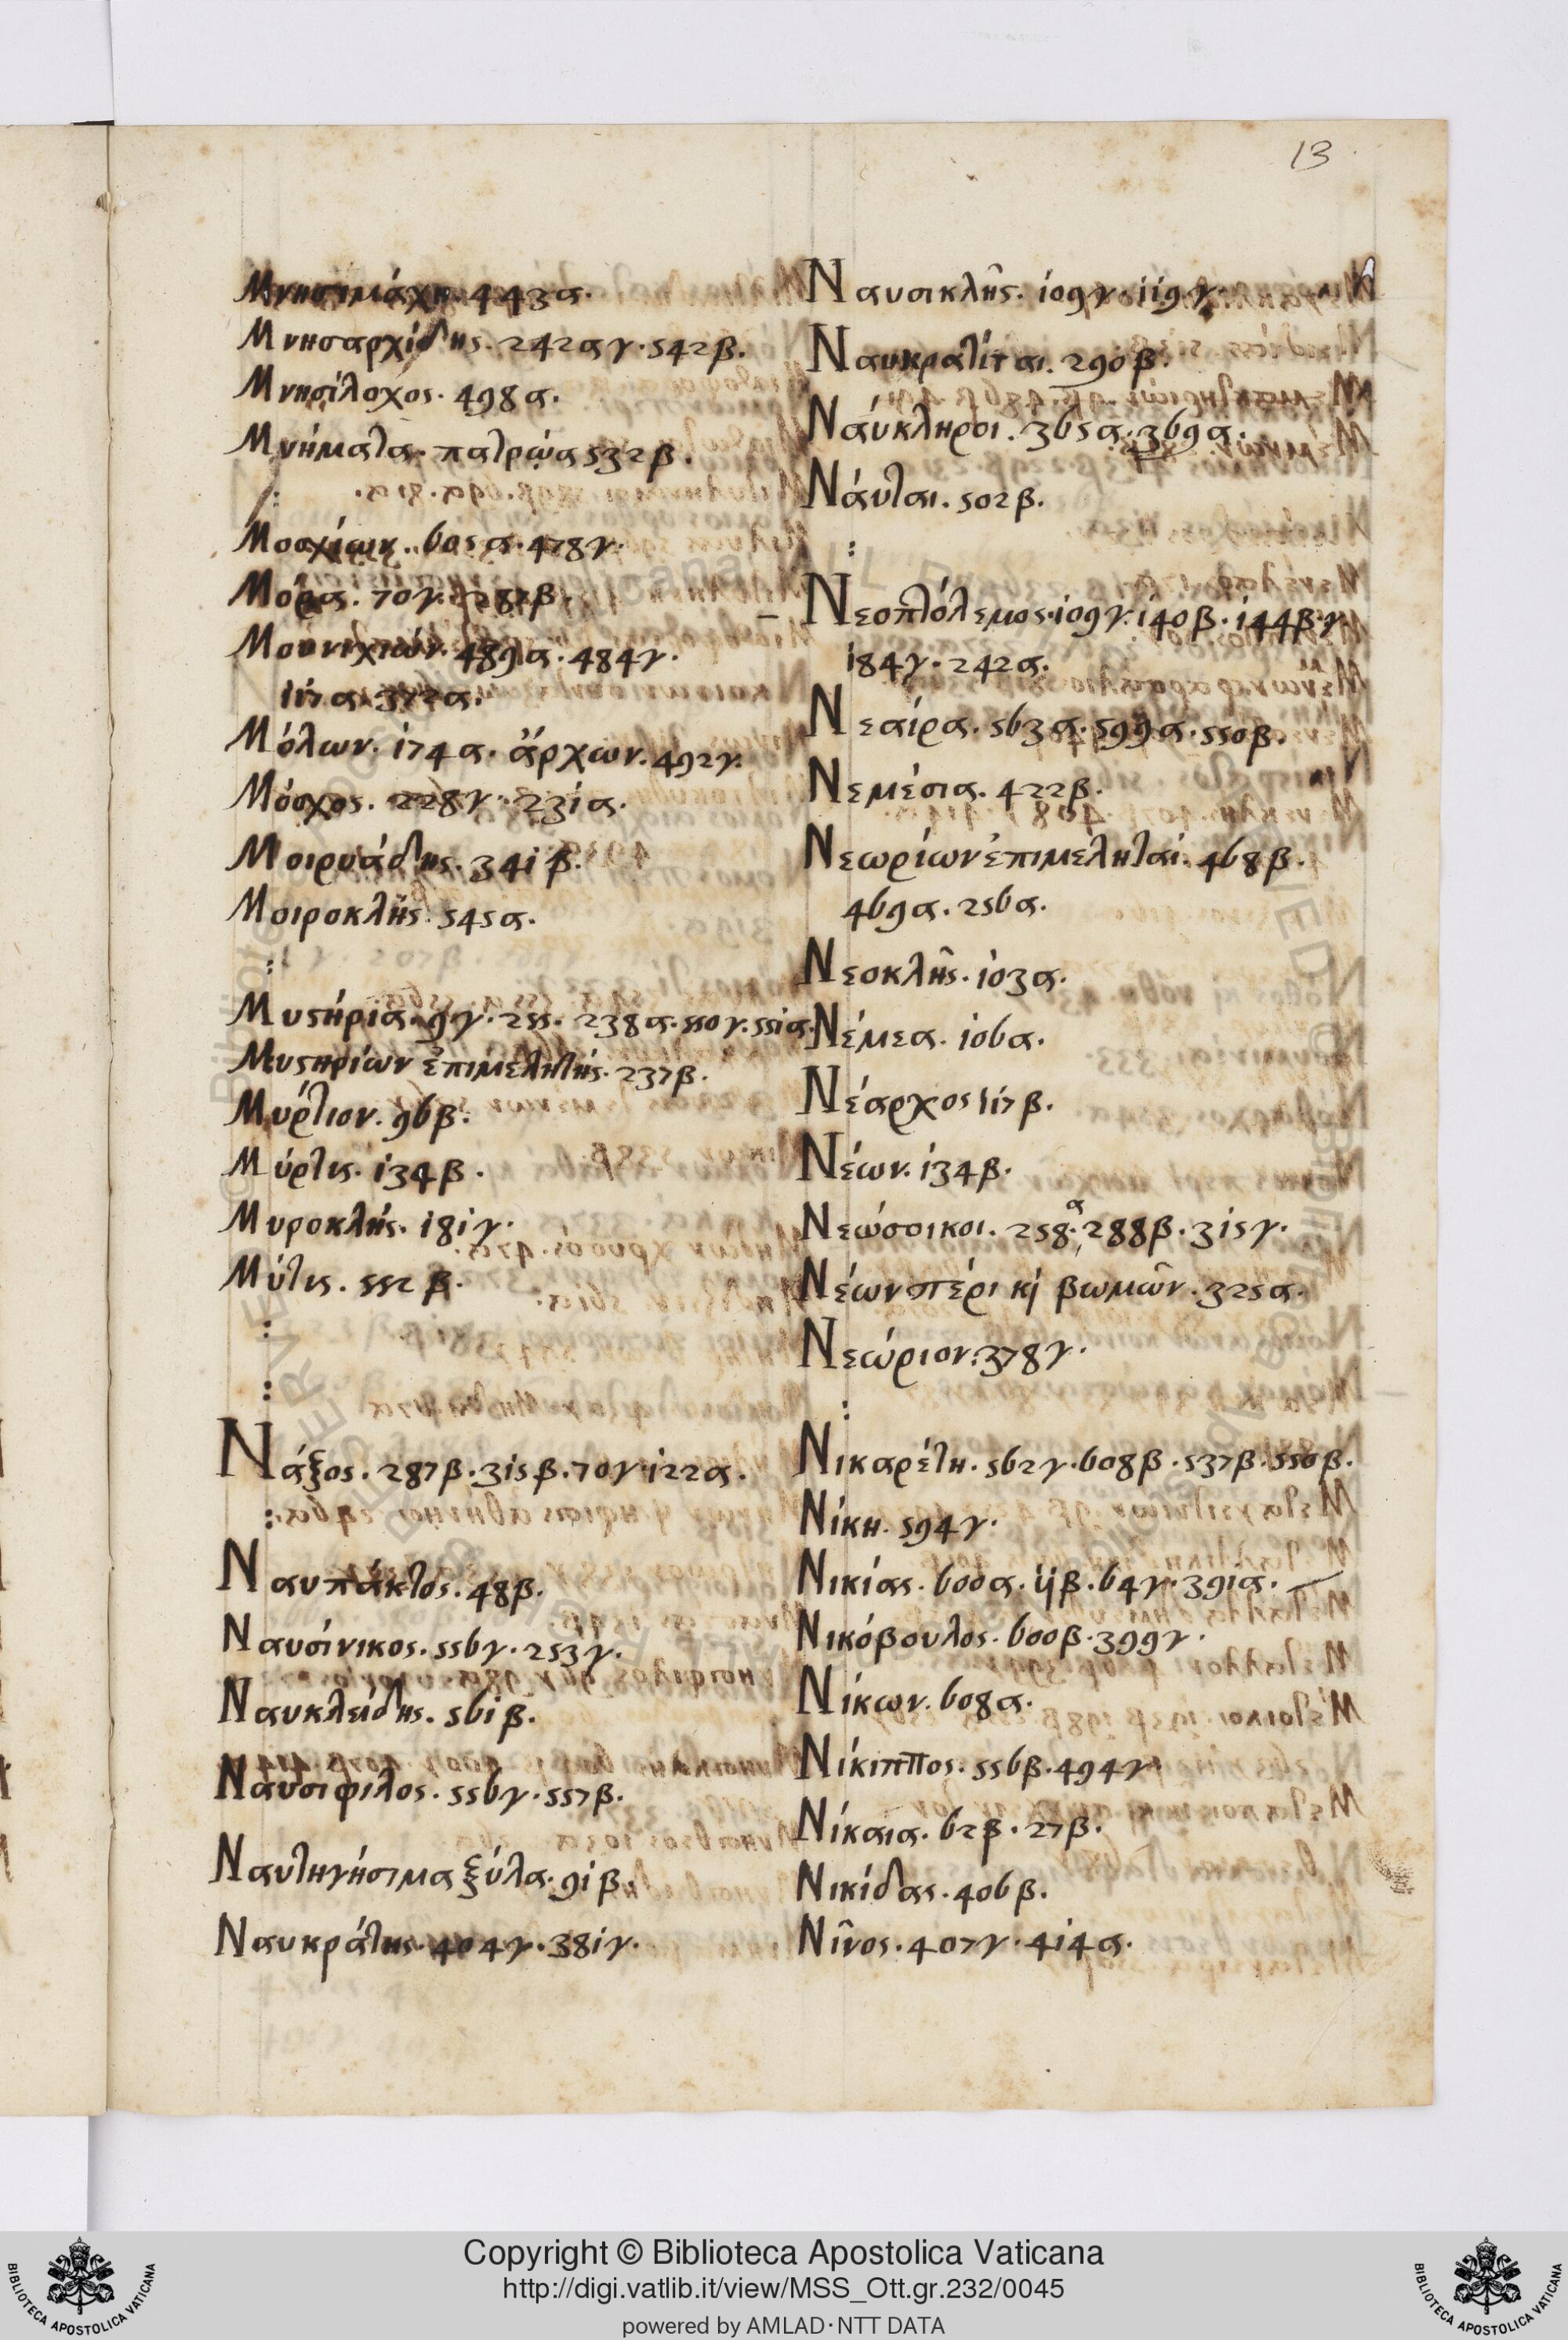 13
Μνησιμάχη. 443α.
Μνησαρχίδης. 242αγ. 542β.
Μνησίλοχος. 498α.
Μνήματα πατρῷα 532β.
:
Μοσχίων. 605α. 478γ.
Μόρα. 70γ. 287β.
Μουνιχιών. 489α. 484γ.
117α. 372α.
Μόλων. 174α. ἄρχων. 492γ.
Μόσχος. 228γ. 231α.
Μοιρυάδης. 341β.
Μοιροκλῆς. 545α.
:
Μυϛήρια. 9γ. 255. 238α. 550γ. 551α.
Μυϛηρίων ἐπιμελητής. 237β.
Μύρτιον. 96β.
Μύρτις. 134β.
Μυροκλής. 181γ.
Μύτις. 552β.
:
:
Νάξος. 287β. 315β. 70γ. 122α.
:
Ναυπάκτος. 48β.
Ναυσίνικος. 556γ. 253γ.
Ναυκλείδης. 561β.
Ναυσιφιλος. 556γ. 557β.
Ναυπηγήσιμα ξύλα. 91β.
Ναυκράτης. 404γ. 381γ.
Ναυσικλῆς. 109γ. 119γ.
Ναυκρατίται. 290β.
Ναύκληροι. 365α. 369α.
Ναύται. 502β.
:
– Νεοπτόλεμος. 109γ. 140β. 144β.γ.
184γ. 242α.
Νεαίρα. 563α. 599α. 550β.
Νεμέσια. 422β.
Νεωρίων ἐπιμεληταί. 468β.
469α. 256α.
Νεοκλῆς. 103α.
Νέμεα. 106α.
Νέαρχος 117β.
Νέων. 134β.
Νεώσοικοι. 258.α 288β. 315γ.
Νέων πέρι κὶ βωμῶν. 325α.
Νεώριον. 378γ.
:
Νικαρέτη. 562γ. 608β. 537β. 550β.
Νίκη. 594γ.
Νικίας. 600α. 11β. 64γ. 391α.
Νικόβουλος. 600β. 399γ.
Νίκων. 608α.
Νίκιππος. 556β. 494γ.
Νίκαια. 62β. 27β.
Νικίδας. 406β.
Νῖνος. 407γ. 414α.
Copyright © Biblioteca Apostolica Vaticana
http://digi.vatlib.it/view/MSS_Ott.gr.232/0045
powered by AMLAD·NTT DATA
BIBLIOTECA APOSTOLICA VATICANA
BIBLIOTECA APOSTOLICA VATICANA